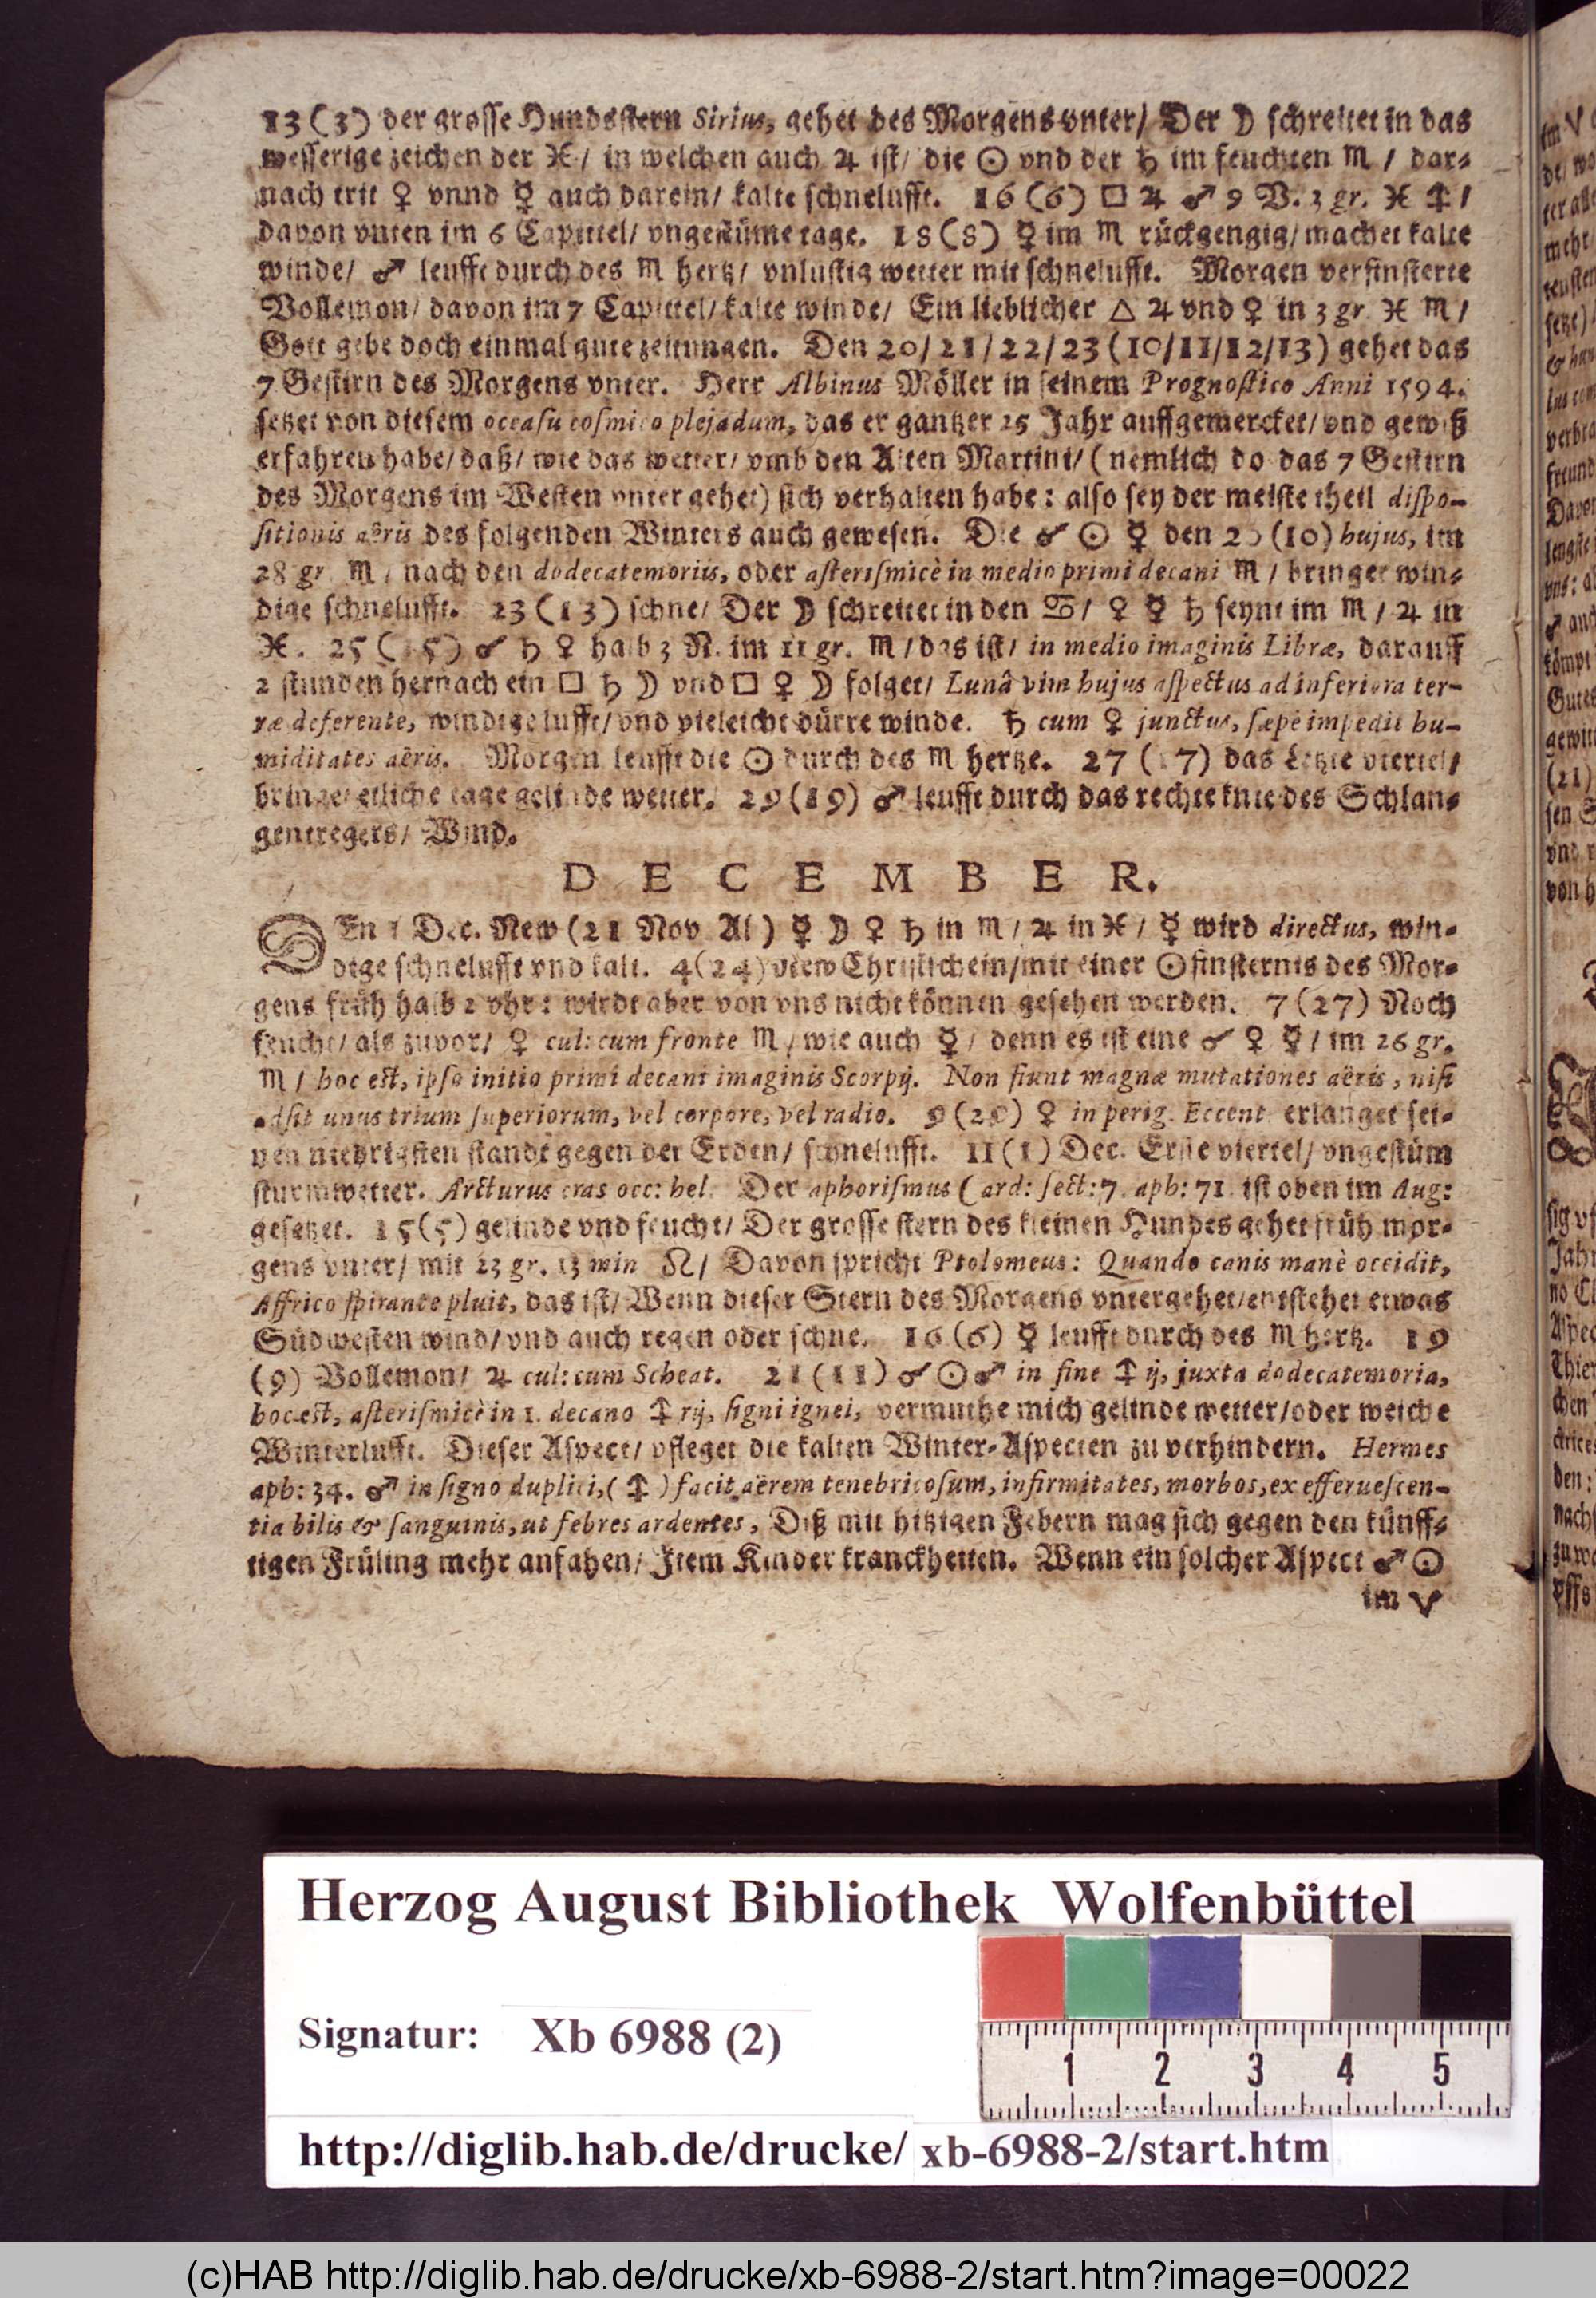 13 (3) der grosse Hundsstern Sirius, gehet des Morgens vnter/ Der ☽ schreitet in das
wesserige zeichen der ♓/ in welchen auch ♃ ist/ die ☉ vnd der ♄ im feuchten ♏ / dar-
nach trit ♀ vnnd ☿ auch darein/ kalte schnelufft. 16 (6) □ ♃ ♂ 9 V. 3 gr. ♓ ♐ /
davon vnten im 6 Capittel/ vngestüme tage. 18 (8) ☿ im ♏ rückgengig/ machet kalte
winde/ ♂ leufft durch des ♏ hertz/ vnlustig wetter mit schnelufft. Morgen verfinsterte
Vollemon/ davon im 7 Capittel/ kalte winde/ Ein lieblicher △ ♃ vnd ♀ in 3 gr. ♓ ♏ /
Gott gebe doch einmal gute zeitungen. Den 20/ 21 / 22 / 23 (10/11/12/13) gehet das
7 Gestirn des Morgens vnter. Herr Albinus Möller in seinem Prognostico Anni 1594.
setzet von diesem occasu cosmico plejadum, das er gantzer 25 Jahr auffgemercket/ vnd gewiß
erfahren habe/ daß/ wie das wetter/ vmb den Alten Martini/ (nemlich do das 7 Gestirn
des Morgens im Westen vnter gehet) sich verhalten habe: also sey der meiste theil dispo-
sitionis aëris des folgenden Winters auch gewesen. Die ☌ ☉ ☿ den 20 (10) hujus, im
28 gr. ♏ / nach den dodecatemoriis, oder asterismicè in medio primi decani ♏ / bringet win-
dige schnelufft. 23 (13) schne/ Der ☽ schreitet in den ♋/ ♀ ☿ ♄ seynt im ♏ / ♃ in
♓. 25 (15) ☌ ♄ ♀ halb 3 N. im 11 gr. ♏ / das ist/ in medio imaginis Libræ, darauff
2 stunden hernach ein □ ♄ ☽ vnd □ ♀ ☽ folget/ Lunâ vim hujus aspectus ad inferiora ter-
ræ deferente, windige lufft/ vnd vieleicht dürre winde. ♄ cum ♀ junctus, sæpè impedit hu-
miditates aëris. Morgen leufft die ☉ durch des ♏ hertze. 27 (17) das Letzte viertel/
bringet etliche tage gelinde wetter. 29 (19) ♂ leufft durch das rechte knie des Schlan-
gentregers/ Wind.
DECEMBER.
DEn 1 Dec. New (21 Nov. Al) ☿ ☽ ♀ ♄ in ♏ / ♃ in ♓ / ☿ wird directus, win-
dige schnelufft vnd kalt. 4 (24) New Christschein/ mit einer ☉finsternis des Mor-
gens früh halb 2 vhr: wirdt aber von vns nicht können gesehen werden. 7 (27) Noch
feucht/ als zuvor/ ♀ cul: cum fronte ♏ / wie auch ☿ / denn es ist eine ☌ ♀ ☿ / im 26 gr.
♏ / hoc est, ipso initio primi decani imaginis Scorpij. Non fiunt magnæ mutationes aëris, nisi
adsit unus trium superiorum, vel corpore, vel radio. 9 (29) ♀ in perig. Eccent. erlanget sei-
nen niedrigsten standt gegen der Erden/ schnelufft. 11 (1) Dec. Erste viertel/ vngestüm
sturmwetter. Arcturus cras occ: hel. Der aphorismus (ard: sect: 7. aph: 71. ist oben im Aug:
gesetzet. 15 (5) gelinde vnd feucht/ Der grosse stern des kleinen Hundes gehet früh mor-
gens vnter/ mit 23 gr. 13 min ♌/ Davon spricht Ptolomeus: Quando canis manè occidit,
Affrico spirante pluit, das ist/ Wenn dieser Stern des Morgens vntergehet/ entstehet etwas
Südwesten wind/ vnd auch regen oder schne. 16 (6) ☿ leufft durch des ♏ hertz. 19
(9) Vollemon/ ♃ cul: cum Scheat. 21 (11) ☌ ☉ ♂ in fine ♐ ij, juxta dodecatemoria,
hoc est, asterismicè in 1. decano ♐ rij, signi ignei, vermuthe mich gelinde wetter/ oder weiche
Winterlufft. Dieser Aspect/ pfleget die kalten Winter-Aspecten zu verhindern. Hermes
aph: 34. ♂ in signo duplici, ( ♐ ) facit aërem tenebricosum, infirmitates, morbos, ex efferuescen-
tia bilis & sanguinis, ut febres ardentes, Diß mit hitzigen Febern mag sich gegen den künff-
tigen Früling mehr anfahen/ Item Kinder kranckheiten. Wenn ein solcher Aspect ♂ ☉
im ♈
Herzog August Bibliothek Wolfenbüttel
Signatur: Xb 6988 (2)
1 2 3 4 5
http://diglib.hab.de/drucke/ xb-6988-2/start.htm
(c)HAB http://diglib.hab.de/drucke/xb-6988-2/start.htm?image=00022